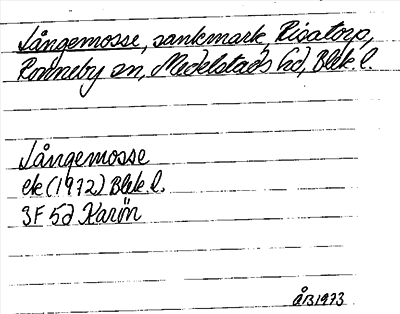 Långemosse, sankmark, Risatorp,
Ronneby sn, Medelstads hd, Blek. l.
Långemosse
ek (1972) Blek. l.
3F 5d Karön
ÅB 1973